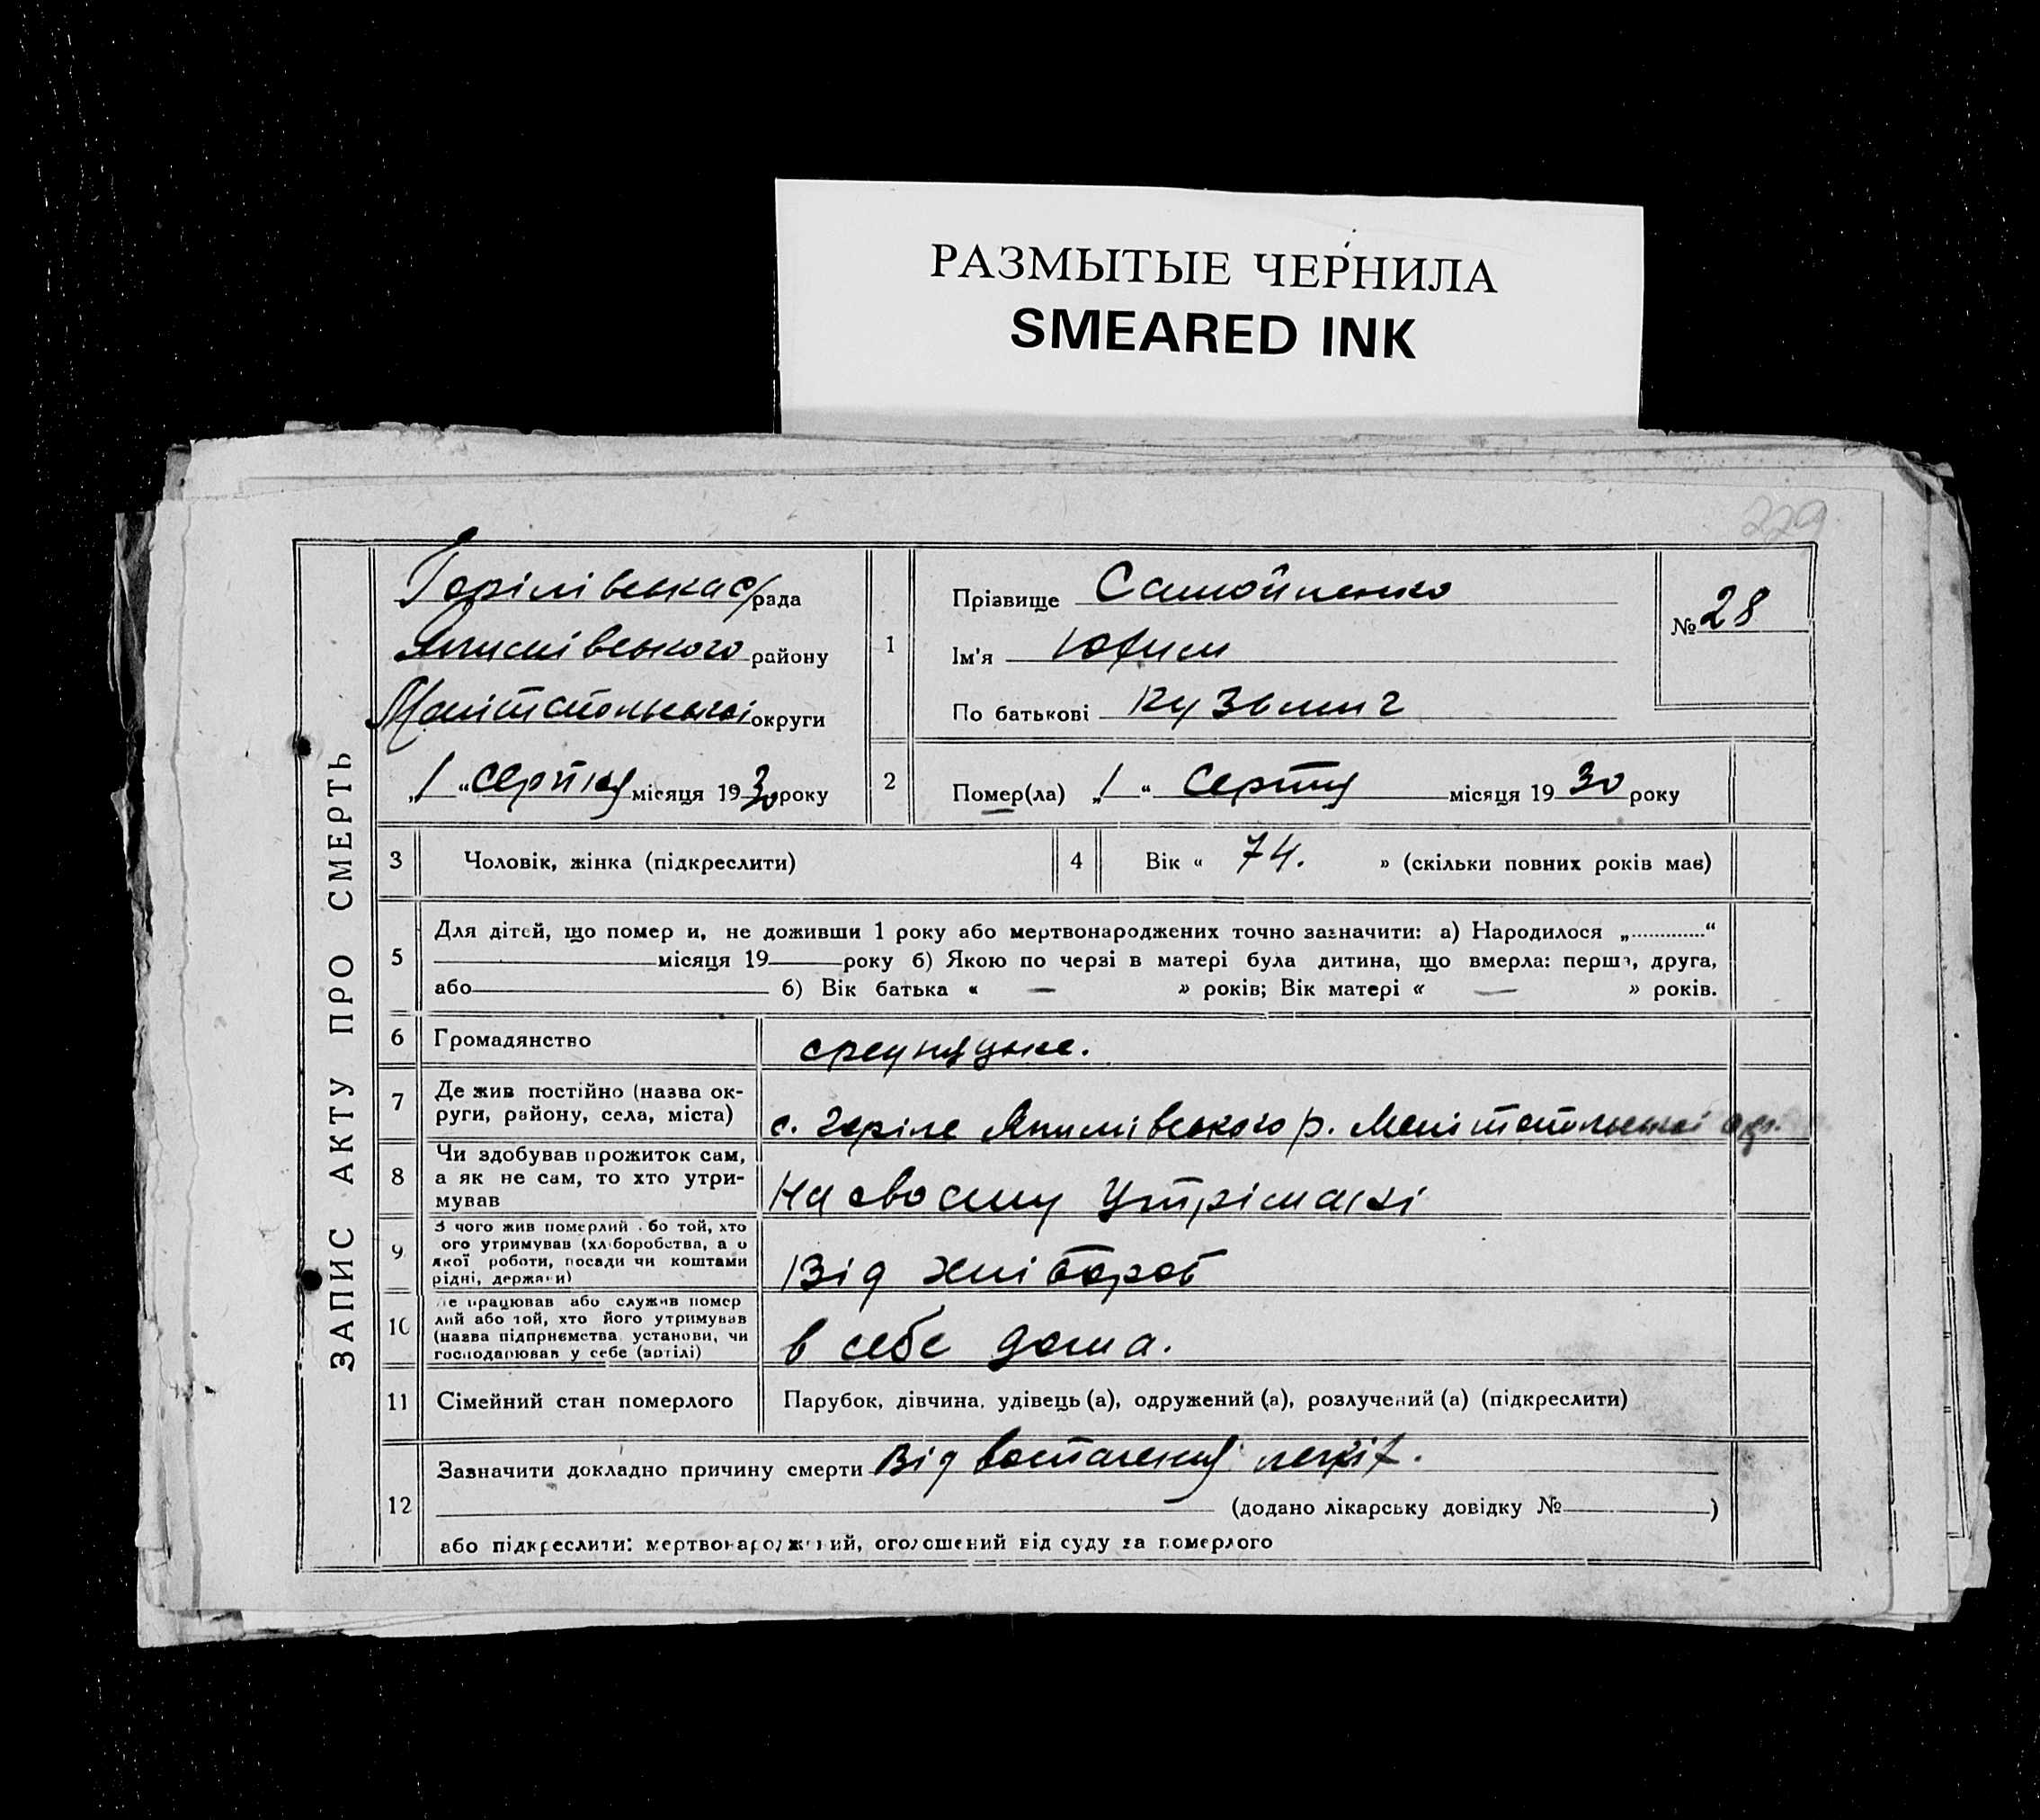 РАЗМЫТЫЕ ЧЕРНИЛА
SMEARED INK
229
ЗАПИС АКТУ ПРО СМЕРТЬ
Горілівська с/рада
Якимівського району
Мелітопольської округи
„1“ серпня місяця 1930 року
1
Прізвище Самойленко
Ім'я Юхим
По батькові Кузьмич
№ 28
2
Помер(ла) „1“ серпня місяця 1930 року
3 Чоловік, жінка (підкреслити)
4 Вік « 74. » (скільки повних років має)
5
Для дітей, що помер и, не доживши 1 року або мертвонароджених точно зазначити: а) Народилося „............“
місяця 19 року б) Якою по черзі в матері була дитина, що вмерла: перша, друга,
або б) Вік батька « — » років; Вік матері « — » років.
6 Громадянство
7 Де жив постійно (назва ок-
руги, району, села, міста)
с. Горіле Якимівського р. Мелітопольської окр.
8 Чи здобував прожиток сам,
а як не сам, то хто утри-
мував
На своєму утріманні
9 З чого жив померлий або той, хто
ого утримував (хліборобства, а о
якої роботи, посади чи коштами
рідні, держави)
Від хлібороб
10 Де працював або служив помер
лий або той, хто його утримував
(назва підприємства установи, чи
господарював у себе (артілі)
в себе дома.
11 Сімейний стан померлого Парубок, дівчина, удівець (а), одружений (а), розлучений (а) (підкреслити)
12 Зазначити докладно причину смерти Від воспаления легкіх.
(додано лікарську довідку № )
або підкреслити: мертвонароджений, оголошений від суду за померлого